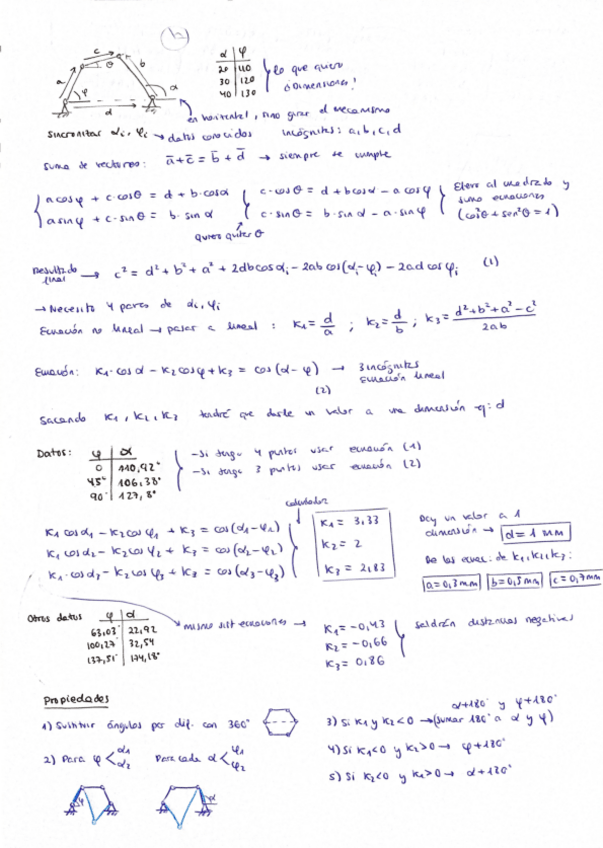 b
α φ
20 110
30 120
40 130
lo que quiero
¿Dimensiones?
a c b d θ φ α
en horizontal, sino girar el mecanismo
Sincronizar αi, φi → datos conocidos incógnitas: a, b, c, d
Suma de vectores: a̅ + c̅ = b̅ + d̅ → siempre se cumple
a cosφ + c·cosθ = d + b·cosα
a sinφ + c·sinθ = b·sinα
c·cosθ = d + b cosα − a cosφ
c·sinθ = b·sinα − a·sinφ
Elevo al cuadrado y
sumo ecuaciones
(cos²θ + sen²θ = 1)
quiero quitar θ
Resultado final → c² = d² + b² + a² + 2db cosαi − 2ab cos(αi − φi) − 2ad cosφi (1)
→ Necesito 4 pares de αi, φi
Ecuación no lineal → pasar a lineal : K1 = d/a ; K2 = d/b ; K3 = (d² + b² + a² − c²)/2ab
Ecuación: K1·cosα − K2 cosφ + K3 = cos(α − φ) → 3 incógnitas
Ecuación lineal
(2)
Sacando K1, K2, K3 tendré que darle un valor a una dimensión ej: d
Datos:
φ α
0 110,92°
45° 106,38°
90° 127,8°
- Si tengo 4 puntos usar ecuación (1)
- Si tengo 3 puntos usar ecuación (2)
calculadora
K1 cosα1 − K2 cosφ1 + K3 = cos(α1 − φ1)
K1 cosα2 − K2 cosφ2 + K3 = cos(α2 − φ2)
K1·cosα3 − K2 cosφ3 + K3 = cos(α3 − φ3)
K1 = 3,33
K2 = 2
K3 = 2,83
Doy un valor a 1
dimensión → d = 1 mm
De las ecuac. de K1, K2, K3:
a = 0,3 mm b = 0,5 mm c = 0,7 mm
Otros datos
φ α
63,03° 22,92
100,27° 32,54
137,51° 174,18°
mismo sist ecuaciones →
K1 = −0,43
K2 = −0,66
K3 = 0,86
saldrán distancias negativas
Propiedades
1) Sustituir ángulos por dif. con 360°
2) Para φ < α1 α2 Para cada α < φ1 φ2
α+180° y φ+180°
3) Si K1 y K2 < 0 → (sumar 180° a α y φ)
4) Si K1 < 0 y K2 > 0 → φ + 180°
5) Si K2 < 0 y K1 > 0 → α + 180°
φ α